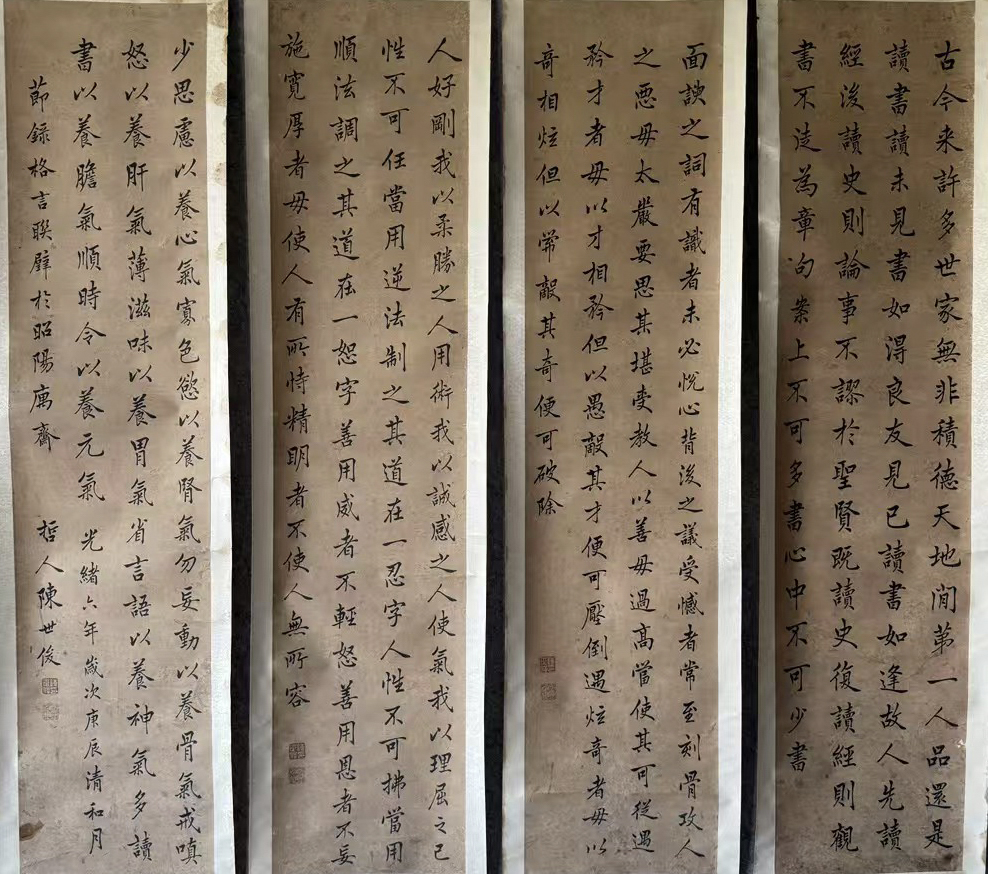 古今来許多世家無非積德天地間第一人品還是
讀書讀未見書如得良友見已讀書如逢故人先讀
經後讀史則論事不謬於聖賢既讀史復讀經則觀
書不徒為章句案上不可多書心中不可少書
面諛之詞有識者未必悅心背後之議受憾者常至刻骨攻人
之惡毋太嚴要思其堪受教人以善毋過高當使其可從遇
矜才者毋以才相矜但以愚敵其才便可壓倒遇炫奇者毋以
奇相炫但以常敵其奇便可破除
人好剛我以柔勝之人用術我以誠感之人使氣我以理屈之己
性不可任當用逆法制之其道在一忍字人性不可拂當用
順法調之其道在一恕字善用威者不輕怒善用恩者不妄
施寬厚者毋使人有所恃精明者不使人無所容
少思慮以養心氣寡色慾以養腎氣勿妄動以養骨氣戒嗔
怒以養肝氣薄滋味以養胃氣省言語以養神氣多讀
書以養膽氣順時令以養元氣 光緒六年歲次庚辰清和月
節錄格言聯璧於昭陽寓齋 哲人陳世俊